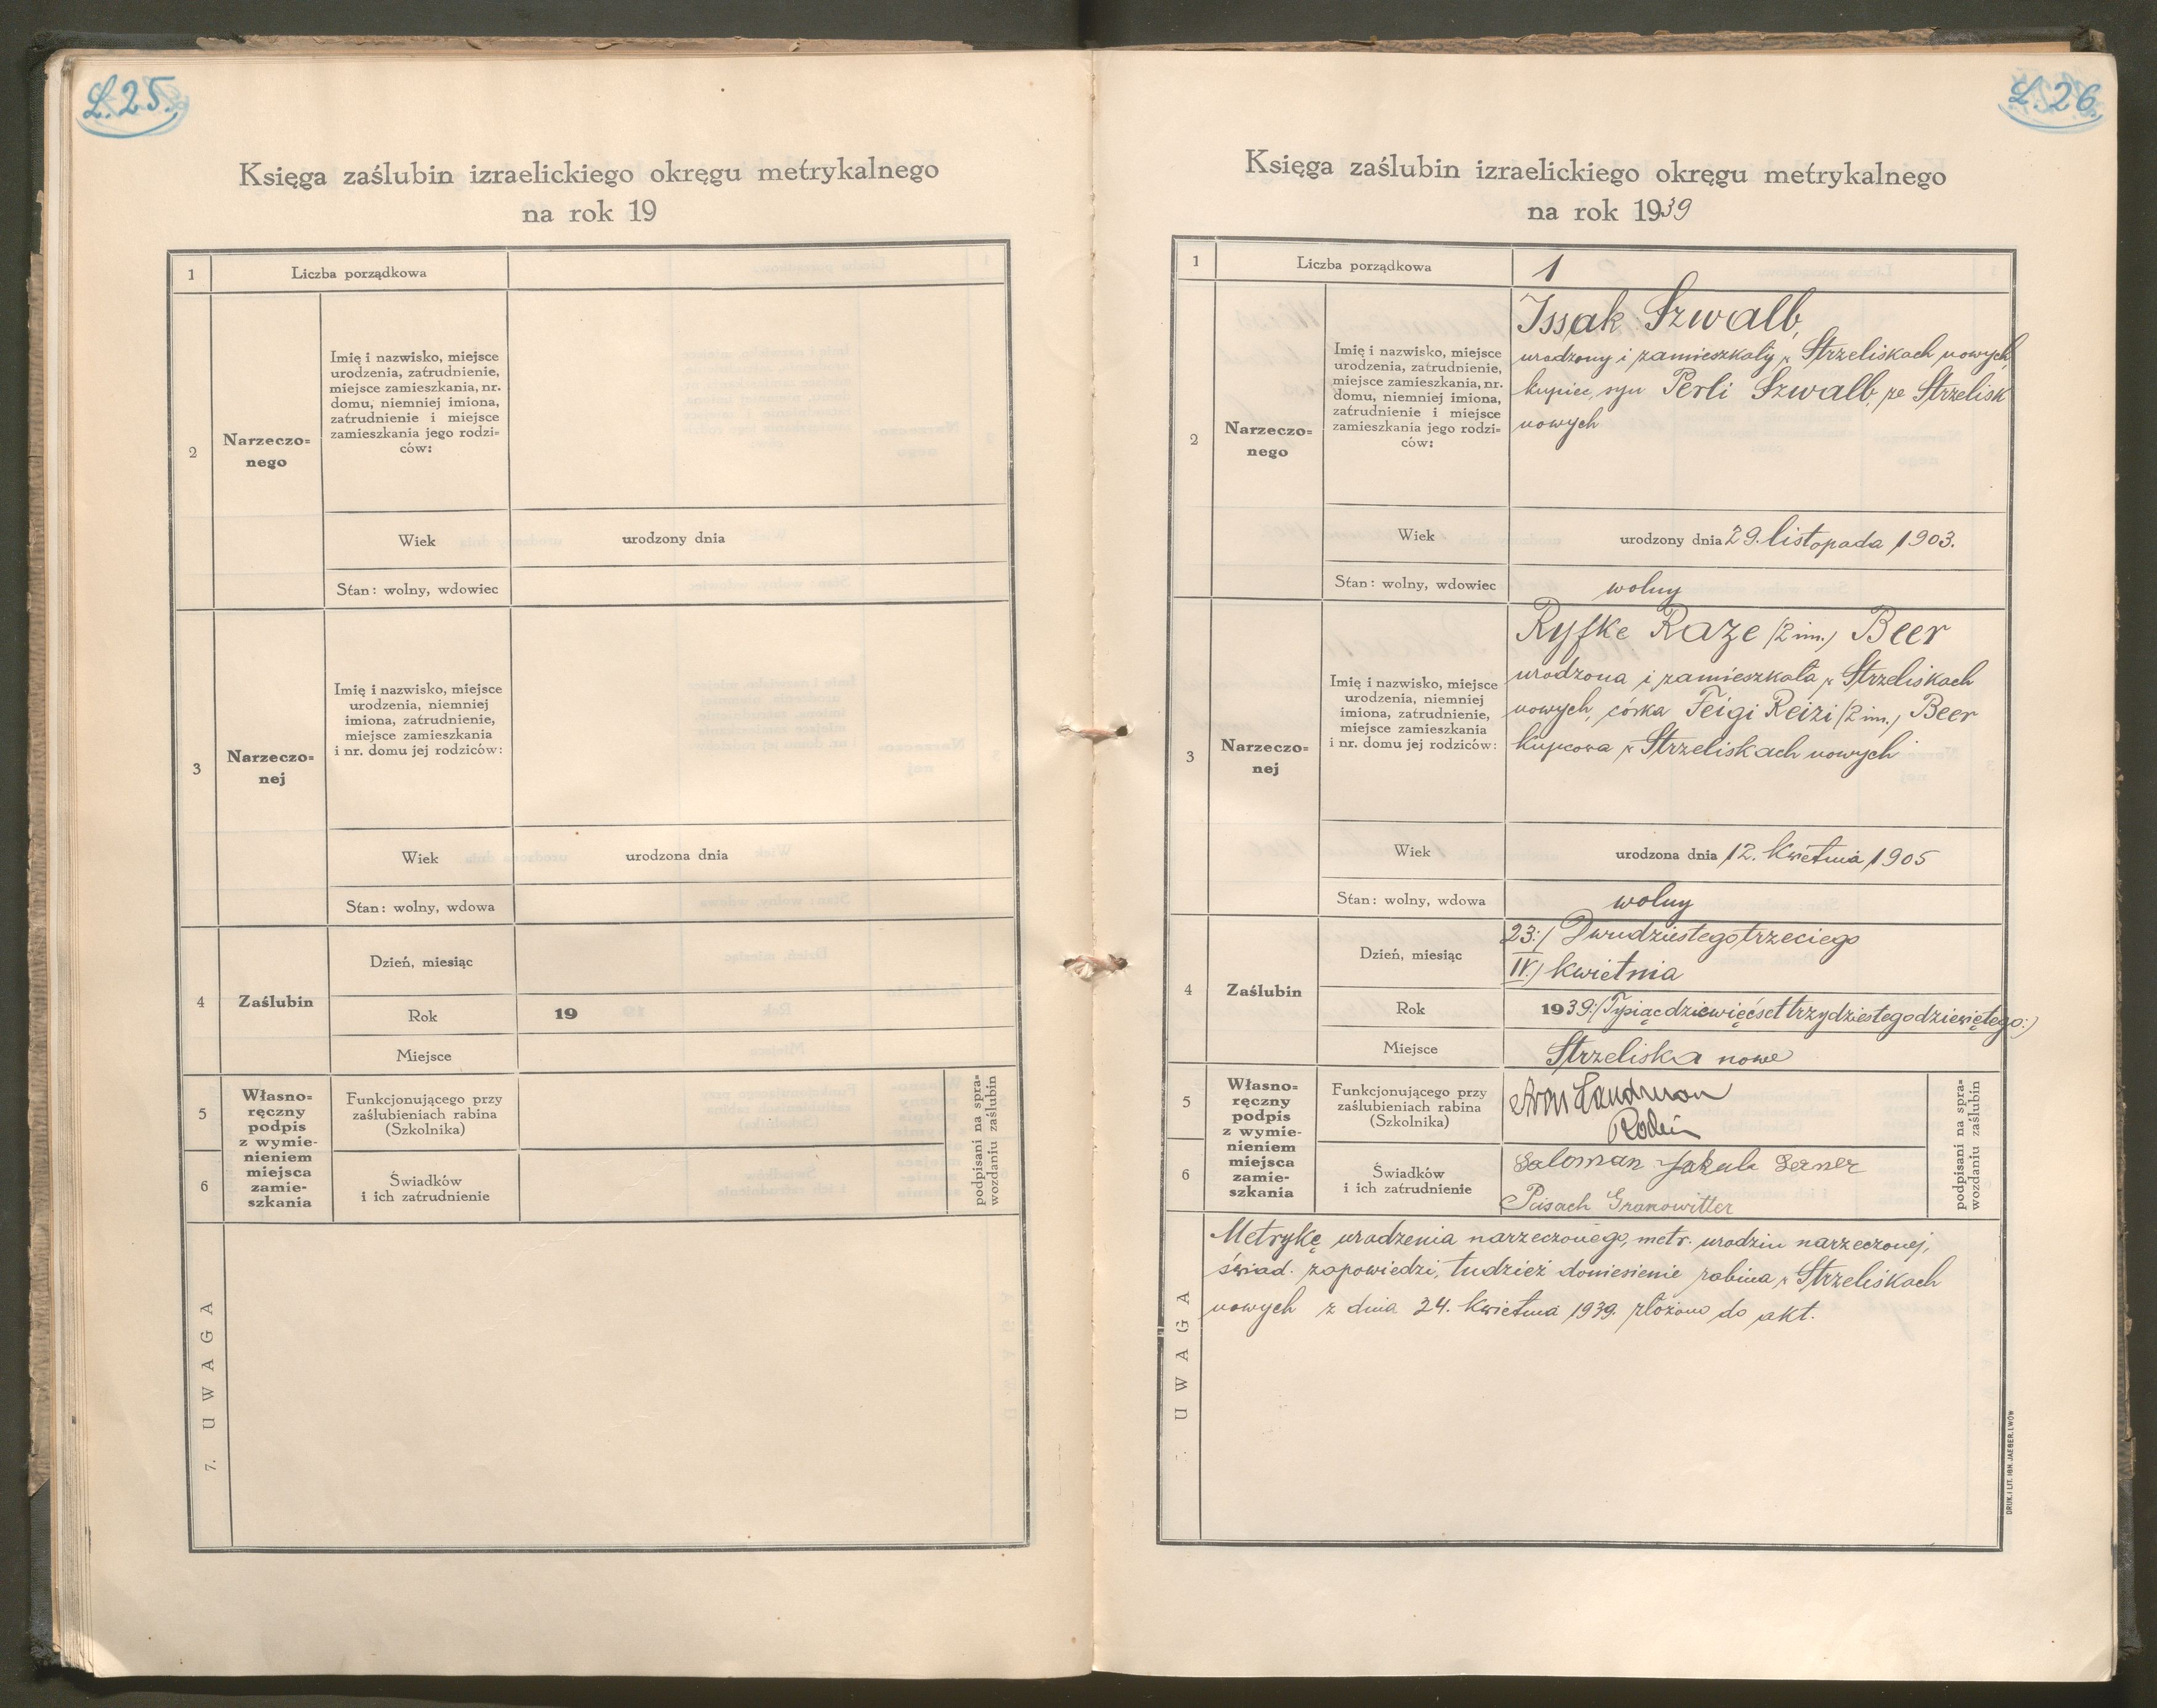 L. 25.
Księga zaślubin izraelickiego okręgu metrykalnego
na rok 19
1
Liczba porządkowa
2
Narzeczo=
nego
Imię i nazwisko, miejsce
urodzenia, zatrudnienie,
miejsce zamieszkania, nr.
domu, niemniej imiona,
zatrudnienie i miejsce
zamieszkania jego rodzi=
ców:
Wiek
urodzony dnia
Stan: wolny, wdowiec
3
Narzeczo=
nej
Imię i nazwisko, miejsce
urodzenia, niemniej
imiona, zatrudnienie,
miejsce zamieszkania
i nr. domu jej rodziców:
Wiek
urodzona dnia
Stan: wolny, wdowa
4
Zaślubin
Dzień, miesiąc
Rok
19
Miejsce
5
6
Własno=
ręczny
podpis
z wymie-
nieniem
miejsca
zamie-
szkania
Funkcjonującego przy
zaślubieniach rabina
(Szkolnika)
Świadków
i ich zatrudnienie
podpisani na spra=
wozdaniu zaślubin
7. UWAGA
L. 26.
Księga zaślubin izraelickiego okręgu metrykalnego
na rok 1939
1
Liczba porządkowa
1
2
Narzeczo=
nego
Imię i nazwisko, miejsce
urodzenia, zatrudnienie,
miejsce zamieszkania, nr.
domu, niemniej imiona,
zatrudnienie i miejsce
zamieszkania jego rodzi=
ców:
Issak Szwalb,
urodzony i zamieszkały w Strzeliskach nowych,
kupiec, syn Perli Szwalb, ze Strzelisk
nowych
Wiek
urodzony dnia 29. listopada 1903.
Stan: wolny, wdowiec
wolny
3
Narzeczo=
nej
Imię i nazwisko, miejsce
urodzenia, niemniej
imiona, zatrudnienie,
miejsce zamieszkania
i nr. domu jej rodziców:
Ryfke Raze /2 im./ Beer
urodzona i zamieszkała w Strzeliskach
nowych, córka Feigi Reizi /2 im./ Beer
kupcowa w Strzeliskach nowych
Wiek
urodzona dnia 12. kwietnia 1905
Stan: wolny, wdowa
wolny
4
Zaślubin
Dzień, miesiąc
23:/ Dwudziestego trzeciego
IV./ kwietnia
Rok
1939:/Tysiąc dziewięćset trzydziestego dziewiętego:/
Miejsce
Strzeliska nowe
5
6
Własno=
ręczny
podpis
z wymie-
nieniem
miejsca
zamie-
szkania
Funkcjonującego przy
zaślubieniach rabina
(Szkolnika)
Landman
Świadków
i ich zatrudnienie
Saloman Jakub Lerner
Peisach Granowitter
podpisani na spra=
wozdaniu zaślubin
UWAGA
Metrykę urodzenia narzeczonego, metr. urodzin narzeczonej,
świad. zapowiedzi, tudzież doniesienie rabina w Strzeliskach
nowych z dnia 24. kwietnia 1939 złożono do akt.
DRUK. I LIT. IGN. JAEGER, LWÓW